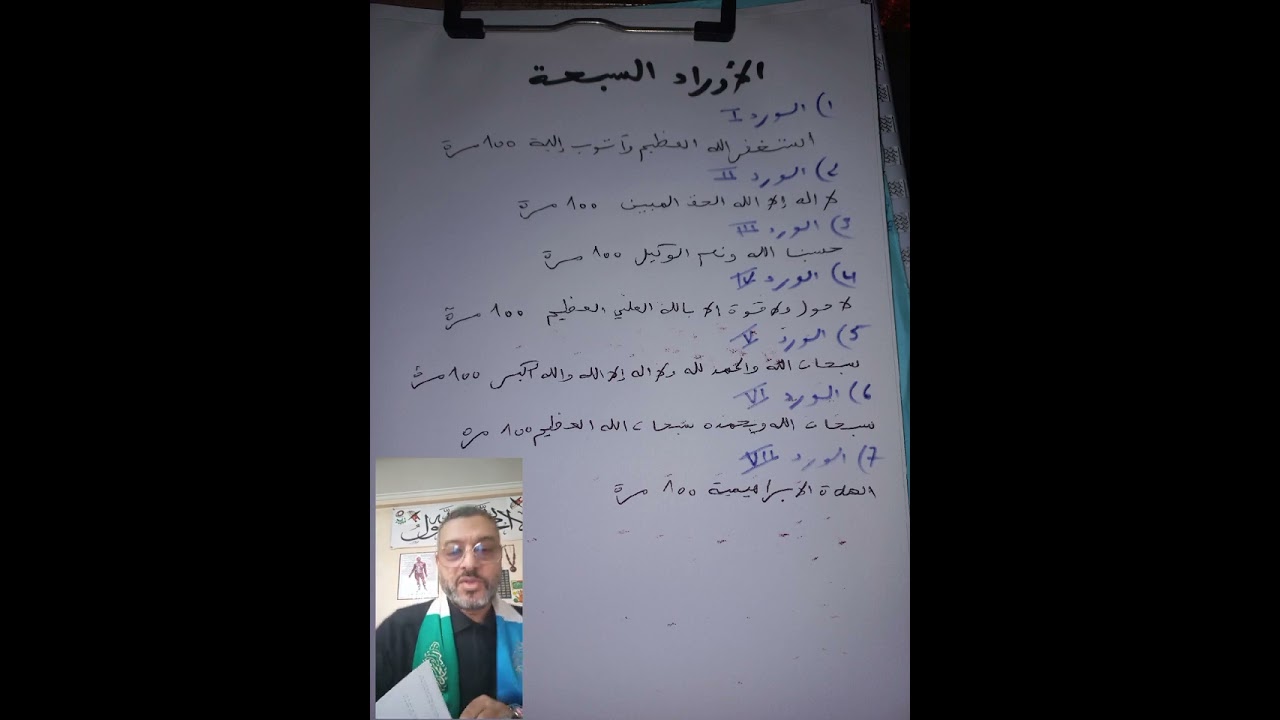 الأوراد السبعة
1) الورد I
استغفر الله العظيم وأتوب إلية 100 مرة
2) الورد II
لا اله إلا الله الحق المبين 100 مرة
3) الورد III
حسبنا الله ونعم الوكيل 100 مرة
4) الورد IV
لا حول ولا قوة الا بالله العلي العظيم 100 مرة
5) الورد V
سبحان الله والحمد لله ولا اله إلا الله والله أكبر 100 مرة
6) الورد VI
سبحان الله وبحمده سبحان الله العظيم 100 مرة
7) الورد VII
الصلاة الإبراهيمية 100 مرة